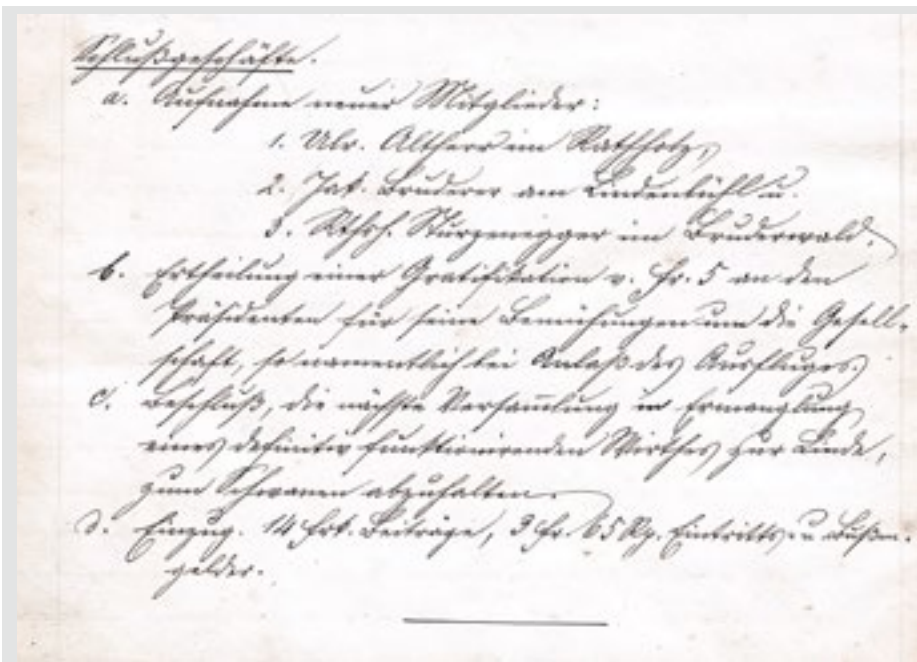 Schlußgeschäfte.
a. Aufnahme neuer Mitglieder:
1. Ulr. Altherr im Rathholz,
2. Jak. Bruderer am Lindenbühl u.
3. Rthsh. Sturzenegger im Bruderwald.
b. Ertheilung einer Gratifikation v. Fr. 5 an den
Präsidenten für seine Bemühungen um die Gesell-
schaft, so namentlich bei Anlaß des Ausfluges.
c. Beschluß, die nächste Versam̄lung in Ermanglung
eines definitiv funktionirenden Wirthes zur Linde,
zum Schwanen abzuhalten.
d. Einzug. 14 Beiträge, 3 Fr. 65 Rp. Eintritts- u. Bußen-
gelder.